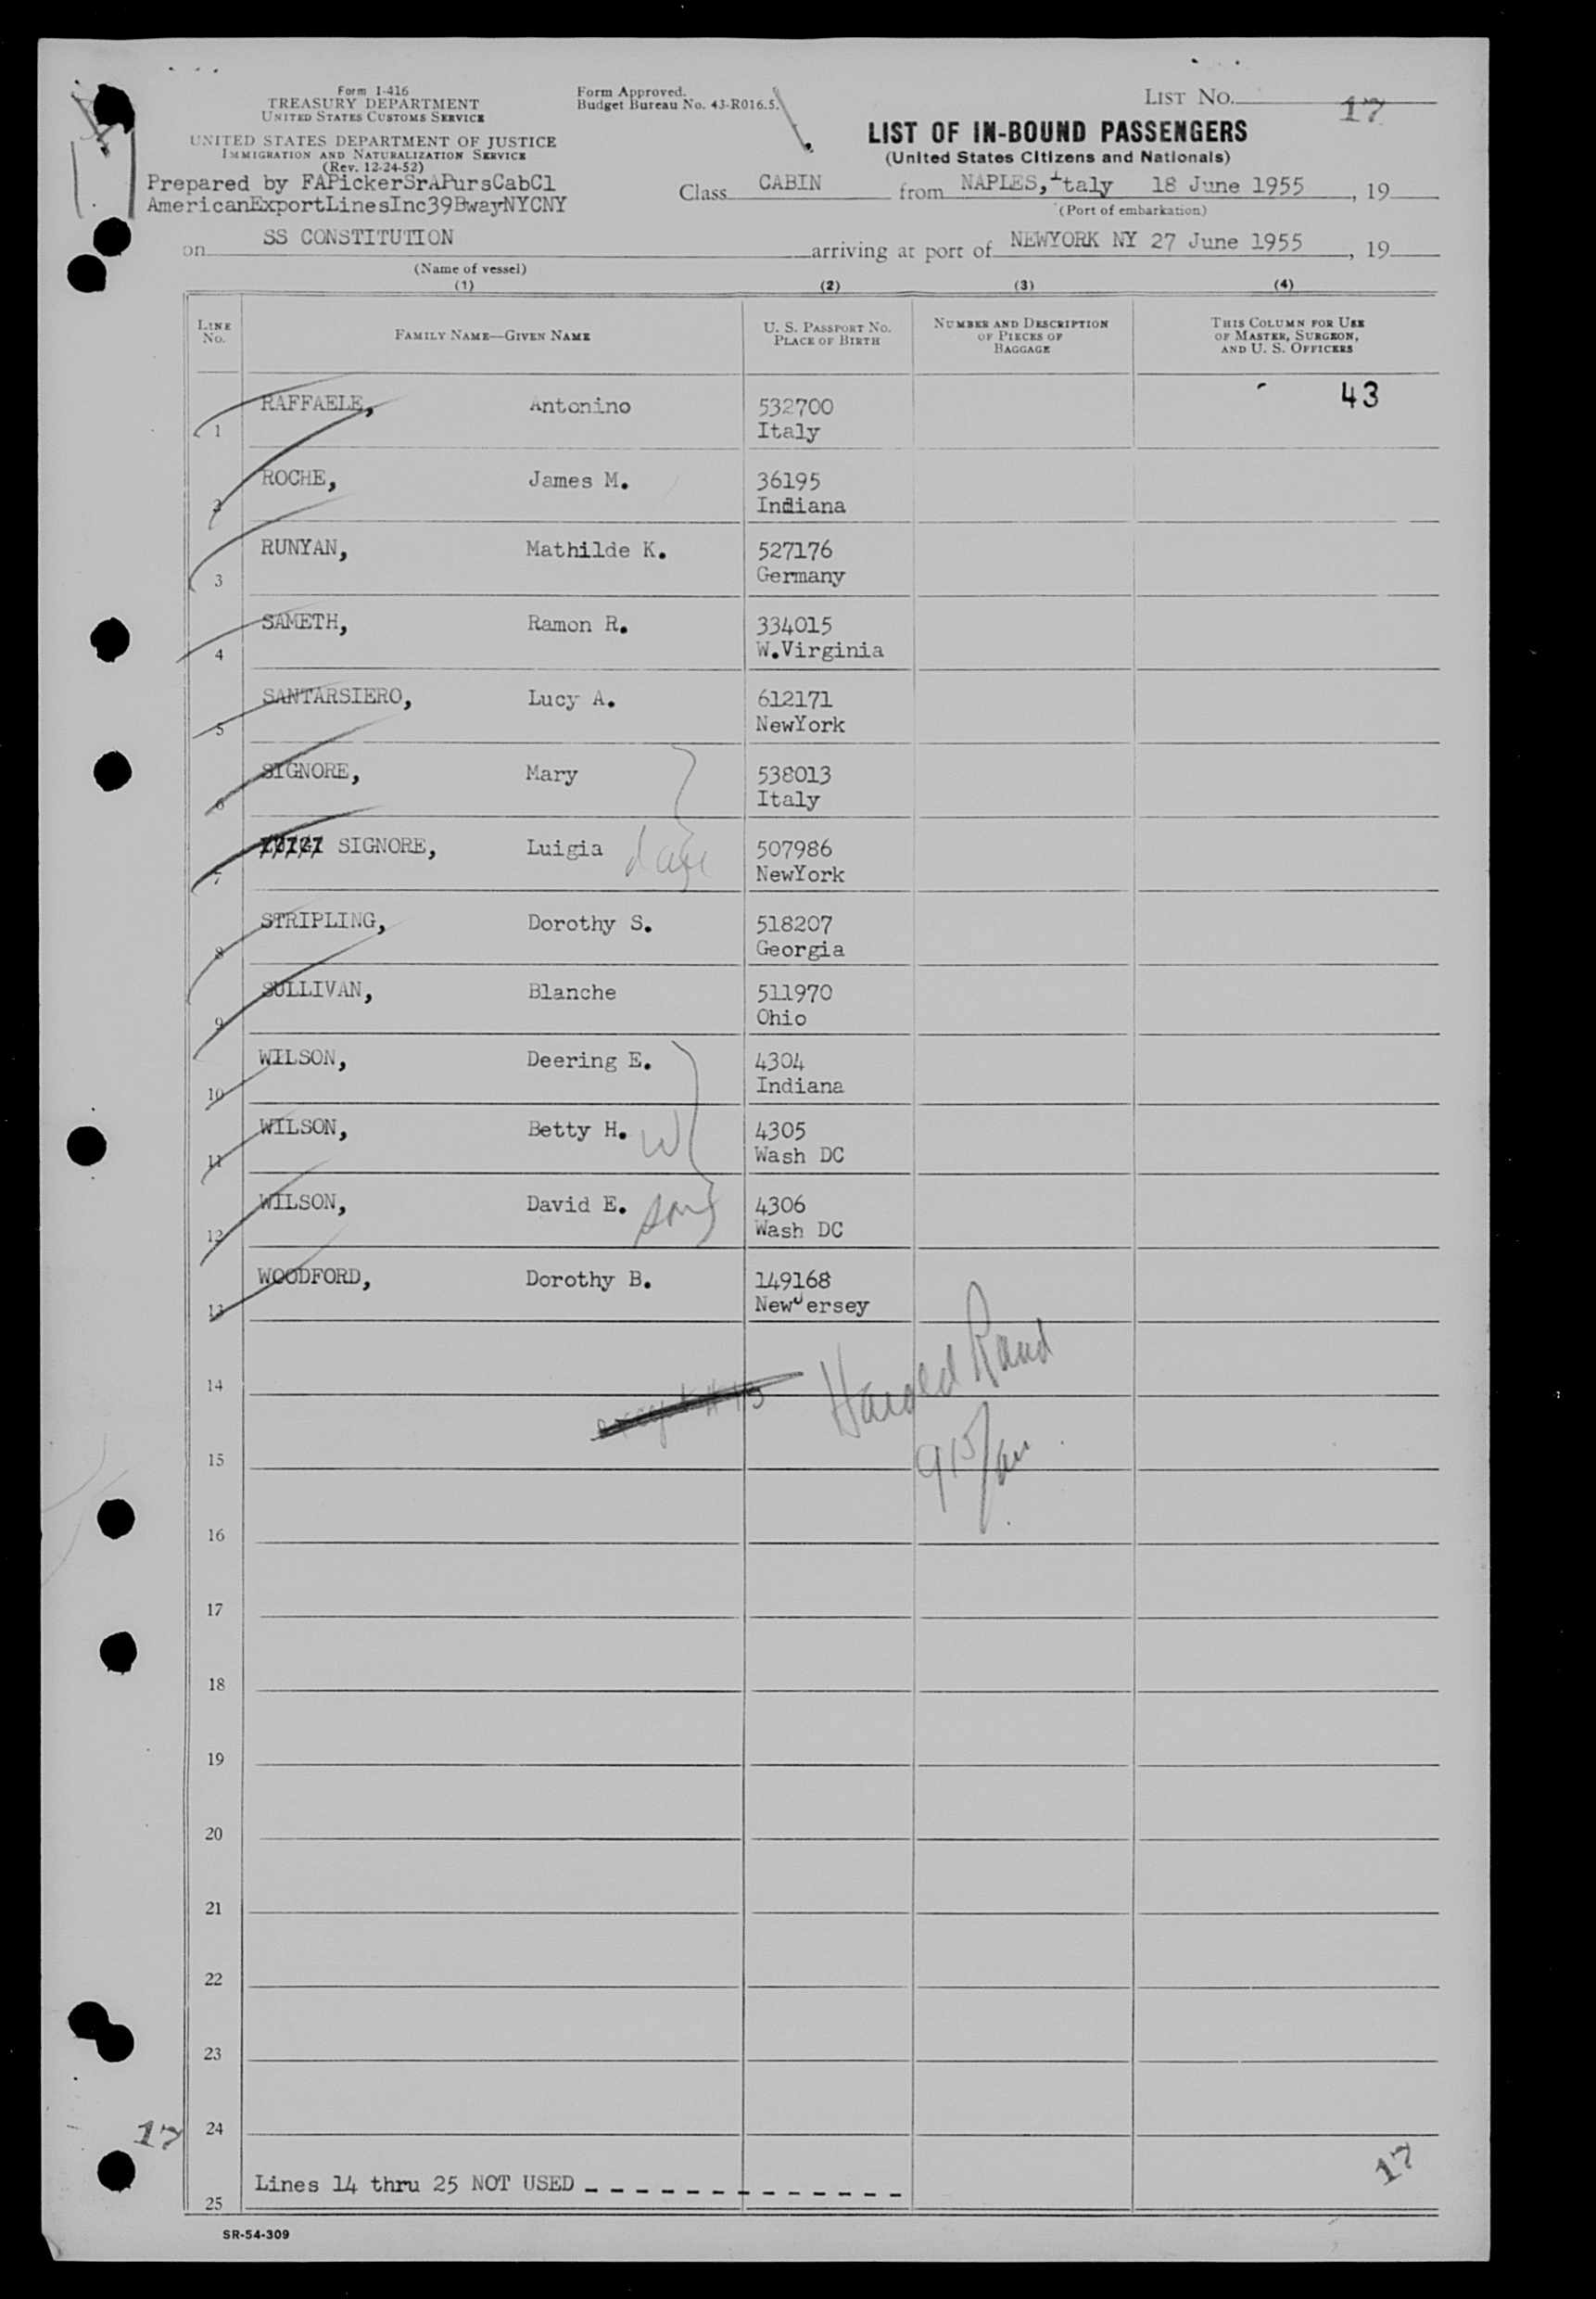 Form I-416
TREASURY DEPARTMENT
UNITED STATES CUSTOMS SERVICE
UNITED STATES DEPARTMENT OF JUSTICE
IMMIGRATION AND NATURALIZATION SERVICE
(Rev. 12-24-52)
Prepared by FAPickerSrAPursCabCl
AmericanExportLinesInc39BwayNYCNY
Form Approved.
Budget Bureau No. 43-R016.5.
LIST No. 17
LIST OF IN-BOUND PASSENGERS
(United States Citizens and Nationals)
Class CABIN from NAPLES, Italy 18 June 1955, 19
(Port of embarkation)
on SS CONSTITUTION arriving at port of NEWYORK NY 27 June 1955, 19
(Name of vessel)
(1) (2) (3) (4)
LINE No. FAMILY NAME—GIVEN NAME U. S. PASSPORT NO. PLACE OF BIRTH NUMBER AND DESCRIPTION OF PIECES OF BAGGAGE THIS COLUMN FOR USE OF MASTER, SURGEON, AND U. S. OFFICERS
43
1 RAFFAELE, Antonino 532700
Italy
2 ROCHE, James M. 36195
Indiana
3 RUNYAN, Mathilde K. 527176
Germany
4 SAMETH, Ramon R. 334015
W.Virginia
5 SANTARSIERO, Lucy A. 612171
NewYork
6 SIGNORE, Mary 538013
Italy
7 SIGNORE, Luigia 507986
NewYork
8 STRIPLING, Dorothy S. 518207
Georgia
9 SULLIVAN, Blanche 511970
Ohio
10 WILSON, Deering E. 4304
Indiana
11 WILSON, Betty H. W 4305
Wash DC
12 WILSON, David E. son 4306
Wash DC
13 WOODFORD, Dorothy B. 149168
NewJersey
Harold Rand
14
915/am
15
16
17
18
19
20
21
22
23
24
17
17
25 Lines 14 thru 25 NOT USED - - - - - - - - - - - - -
SR-54-309